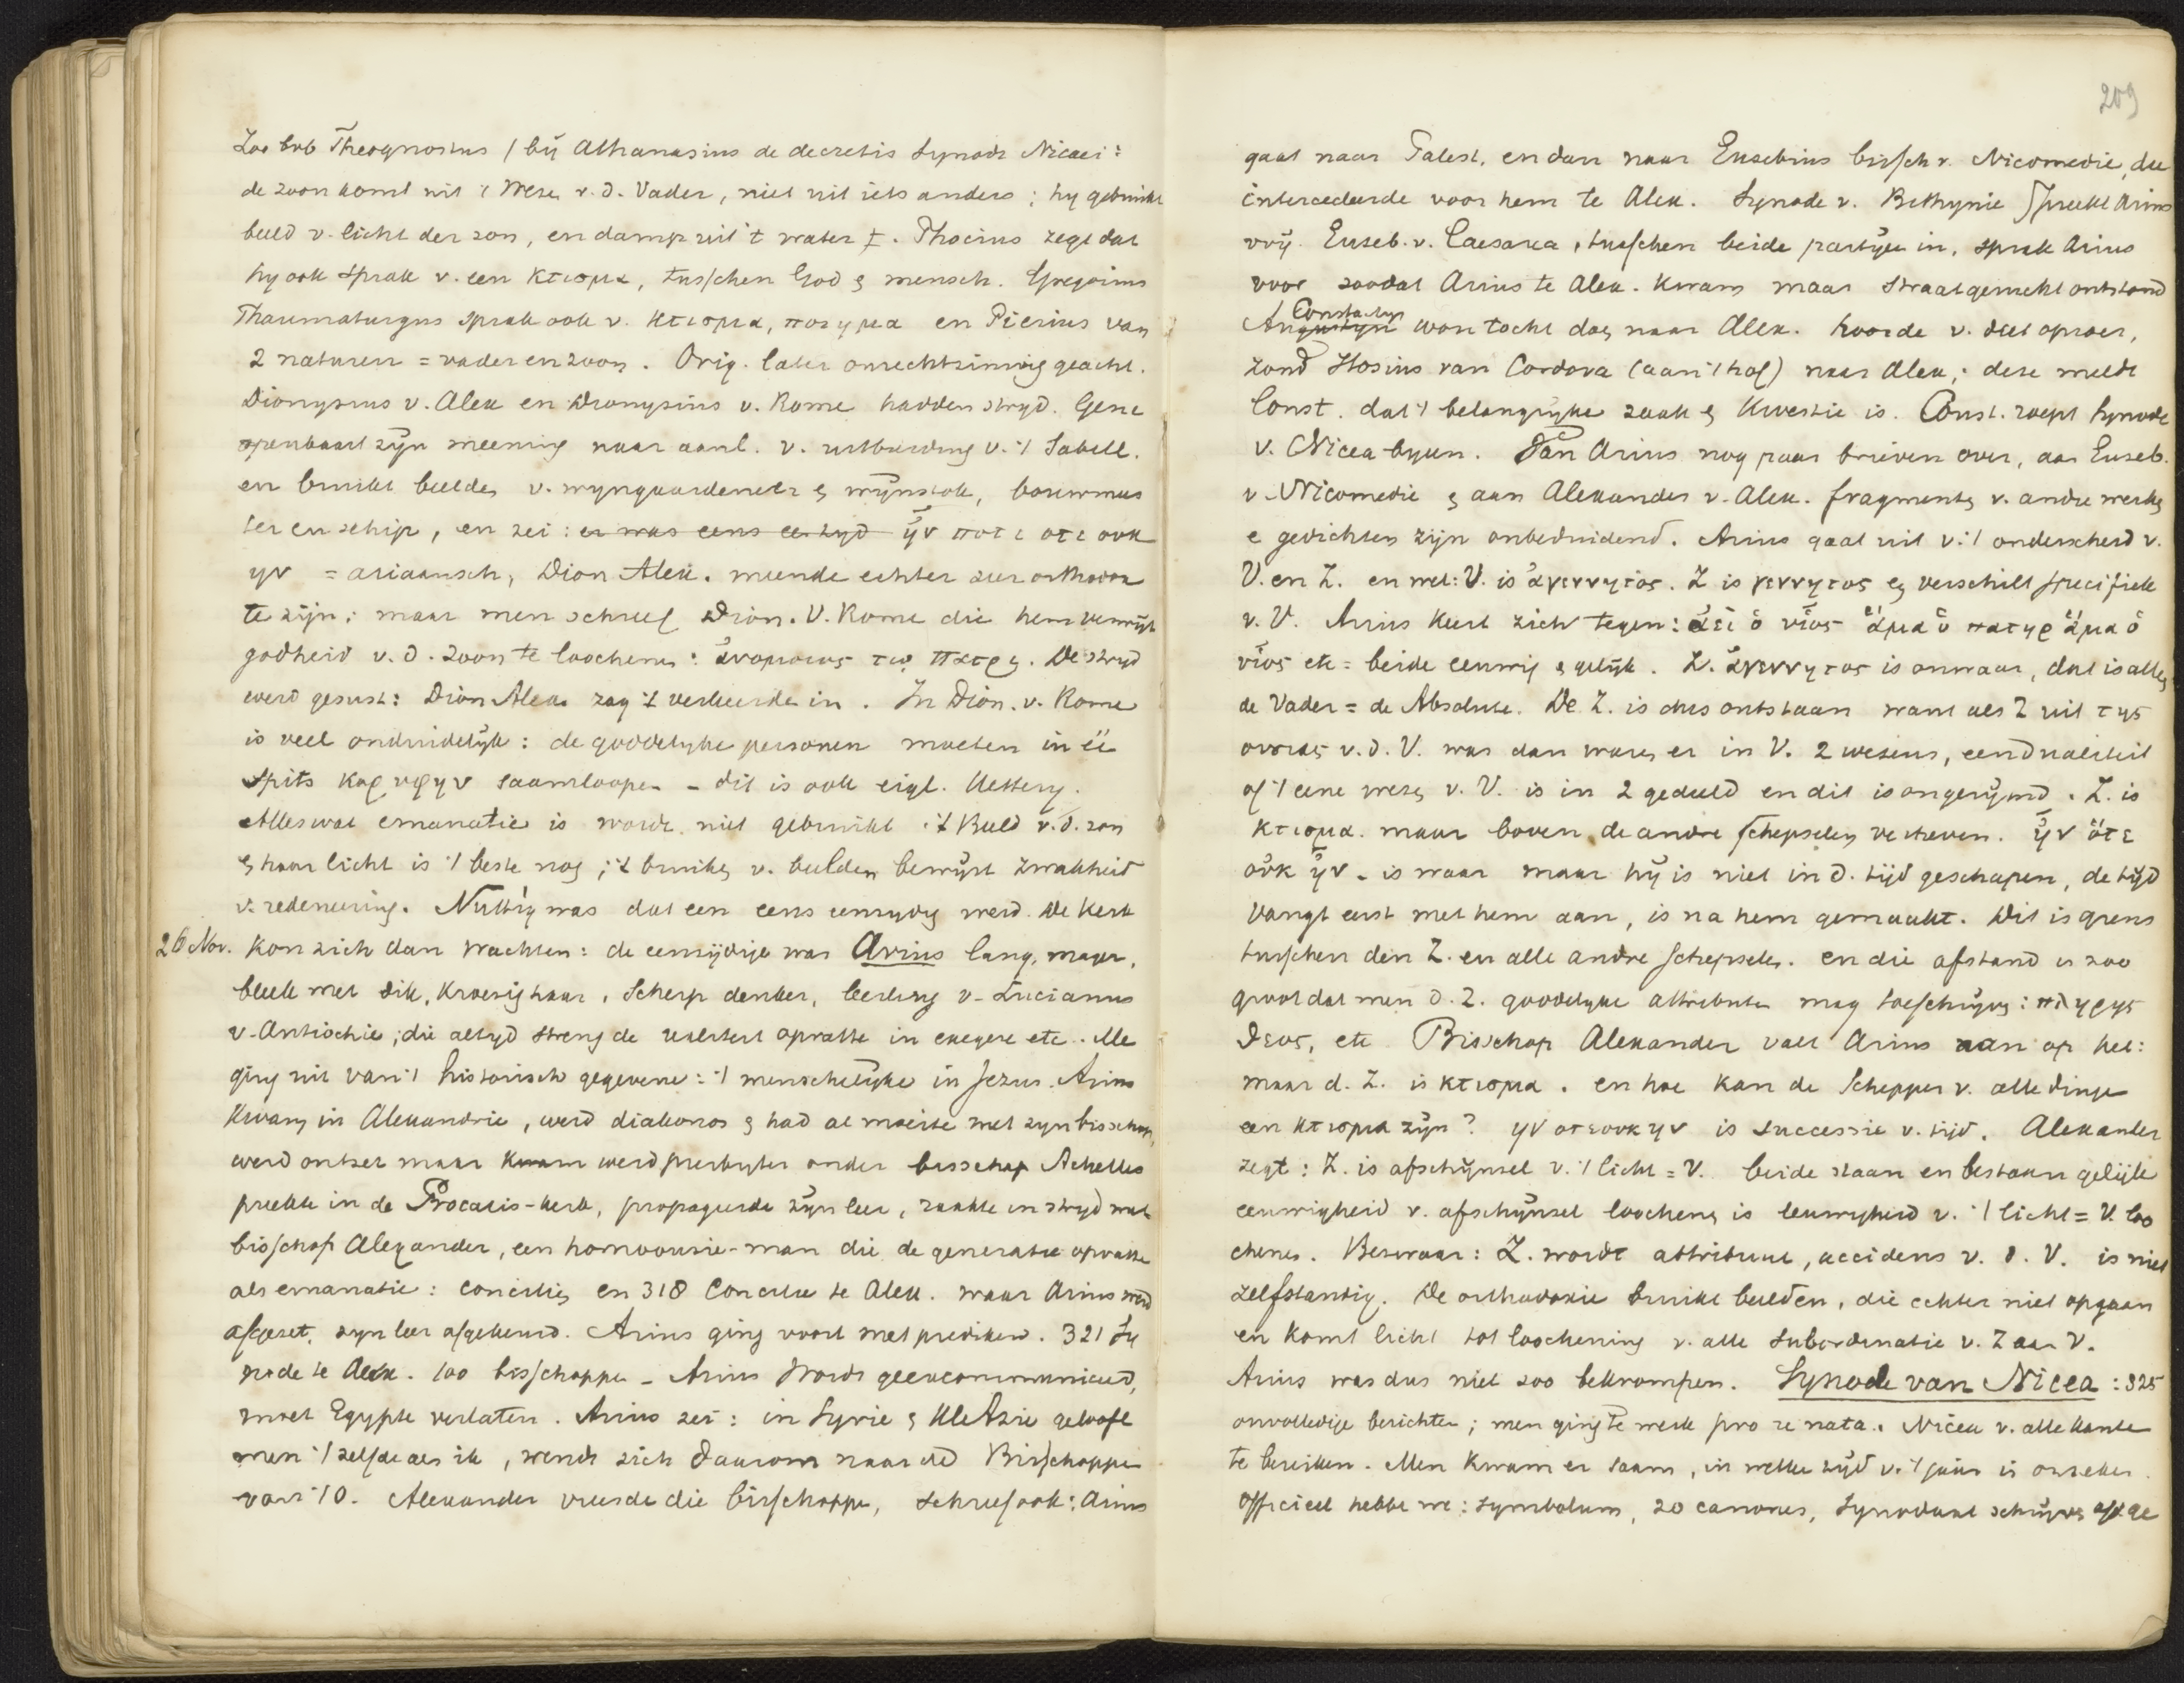 Zoo bvb Theognostus / bij Athanasius de decretis Synodi Nicaei:
de zoon komt uit 't Wezen v.d. Vader, niet uit iets anders; hy gebruikt
beeld v. licht der zon, en damp uit 't water. Photius zegt dat
hy ook sprak v. een κτισμα, tusschen God & mensch. Gregorius
Thaumaturgus sprak ook v. κτισμα, ποιημα en Pierius van
2 naturen = vader en zoon. Orig. later onrechtzinnig geacht.
Dionysius v. Alex en Dionysius v. Rome hadden stryd. Gene
openbaart zyn meening naar aanl. v. uitbreiding v. 't Sabell.
en bruikt beelden v. wyngaardenier & wijnstok, bouwmees
ter en schip, en zei: er was eens een tyd ἦν ποτε οτε ουκ
ην = ariaansch, Dion Alex. meende echter zeer orthodox
te zijn; maar men schreef Dion. v. Rome die hem verwijt
godheid v.d. zoon te loochenen: ἀνομοιος τῳ πατρι. De stryd
werd gesust: Dion Alex. zag 't verkeerde in. In Dion. v. Rome
is veel onduidelyk: de goddelyke personen moeten in éé
spits κορυφην saamloopen - dit is ook eigl. kettery.
Alles wat emanatie is worde niet gebruikt. 't Beeld v.d. zon
& haar licht is 't beste nog; 't bruiken v. beelden bewijst zwakheid
v. redeneering. Nuttig was dat een eens eenzydig werd. De kerk
26 Nov. kon zich dan wachten: de eenzijdige was Arius lang, mager,
bleek met dik, kroezig haar, scherp denker, leerling v. Lucianus
v. Antiochie; die altyd streng de realiteit opvatte in exegese etc. Me
ging uit van 't historisch gegevene: 't menschelyke in Jezus. Arius
kwam in Alexandrie, werd diakonos & had al moeite met zyn bisschop,
werd ontzet maar kwam werd presbyter onder bisschop Achillas
preekte in de Procaris-kerk, propageerde zyn leer, raakte in stryd met
bisschop Alexander, een homoousie-man die de generatie opvatte
als emanatie: concilies en 318 Concilie te Alex. waar Arius werd
afgezet, zyn leer afgekeurd. Arius ging voort met prediken. 321 Sy
node te Alex. 100 bisschoppen - Arius wordt geexcommuniceerd,
moet Egypte verlaten. Arius zei: in Syrie & Kl. Azie gelooft
men 't zelfde als ik, wendt zich daarom naar de Bisschoppen
van 't O. Alexander vreesde die bisschoppen, schreef ook: Arius
209
gaat naar Palest, en dan naar Eusebius bissch v. Nicomedie, die
intercedeerde voor hem te Alex. Synode v. Bithynie spreekt Arius
vrij. Euseb. v. Caesarea, tusschen beide partijen in, sprak Arius
voor zoodat Arius te Alex. kwam maar straatgevecht ontstond
Constantyn
Augustyn won tocht daer naar Alex. hoorde v. dit oproer,
zond Hosius van Cordova (aan 't hof) naar Alex; deze meldt
Const. dat 't belangryke zaak & kwestie is. Const. roept synode
v. Nicea byeen. Van Arius nog paar brieven over, aan Euseb.
v. Nicomedie & aan Alexander v. Alex. fragmenten v. andre werken
e gedichten zijn onbeduidend. Arius gaat uit v. 't onderscheid v.
V. en Z. en wel: V. is ἀγεννητος. Z is γεννητος en verschilt specifiek
v. V. Arius keert zich tegen: ἀεὶ ὁ υἱος ἅμα ὁ πατηρ ἅμα ὁ
υἱος etc = beide eeuwig & gelijk. Z. ἀγεννητος is onwaar, dat is alleen
de Vader = de Absolute. De Z. is dus ontstaan want als Z uit της
ουσιας v.d. V. was dan waren er in V. 2 wezens, een dualiteit
of 't eene wezen v. V. is in 2 gedeeld en dit is ongerijmd. Z. is
κτισμα. maar boven de andre schepselen verheven. ἦν ὅτε
οὐκ ἦν - is waar maar hij is niet in d. tijd geschapen, de tijd
vangt eerst met hem aan, is na hem gemaakt. Dit is grens
tusschen den Z. en alle andre schepselen. en die afstand is zoo
groot dat men d. Z. goddelyke attributen mag toeschrijven: πληρης
θεος, etc Bisschop Alexander valt Arius aan op het:
maar d. Z. is κτισμα. en hoe kan de Schepper v. alle dingen
een κτισμα zijn? ην οτε ουκ ην is successie v. tijd. Alexander
zegt: Z. is afschijnsel v. 't licht = V. beide staan en bestaan gelijk
eeuwigheid v. afschijnsel loochenen is eeuwigheid v. 't licht = V. loo
chenen. Bezwaar: Z. wordt attribuut, accidens v. d. V. is niet
zelfstandig. De orthodoxie bruikt beelden, die echter niet opgaan
en komt licht tot loochening v. alle subordinatie v. Z aan V.
Arius was dus niet zoo bekrompen. Synode van Nicea: 325
onvolledige berichten; men ging te werk pro re nata. Nicea v. alle kanten
te bereiken. Men kwam er saam, in welke tijd v. 't jaar is onzeker.
Officieel hebben we: symbolum, 20 canones, Synodaal schrijven afge